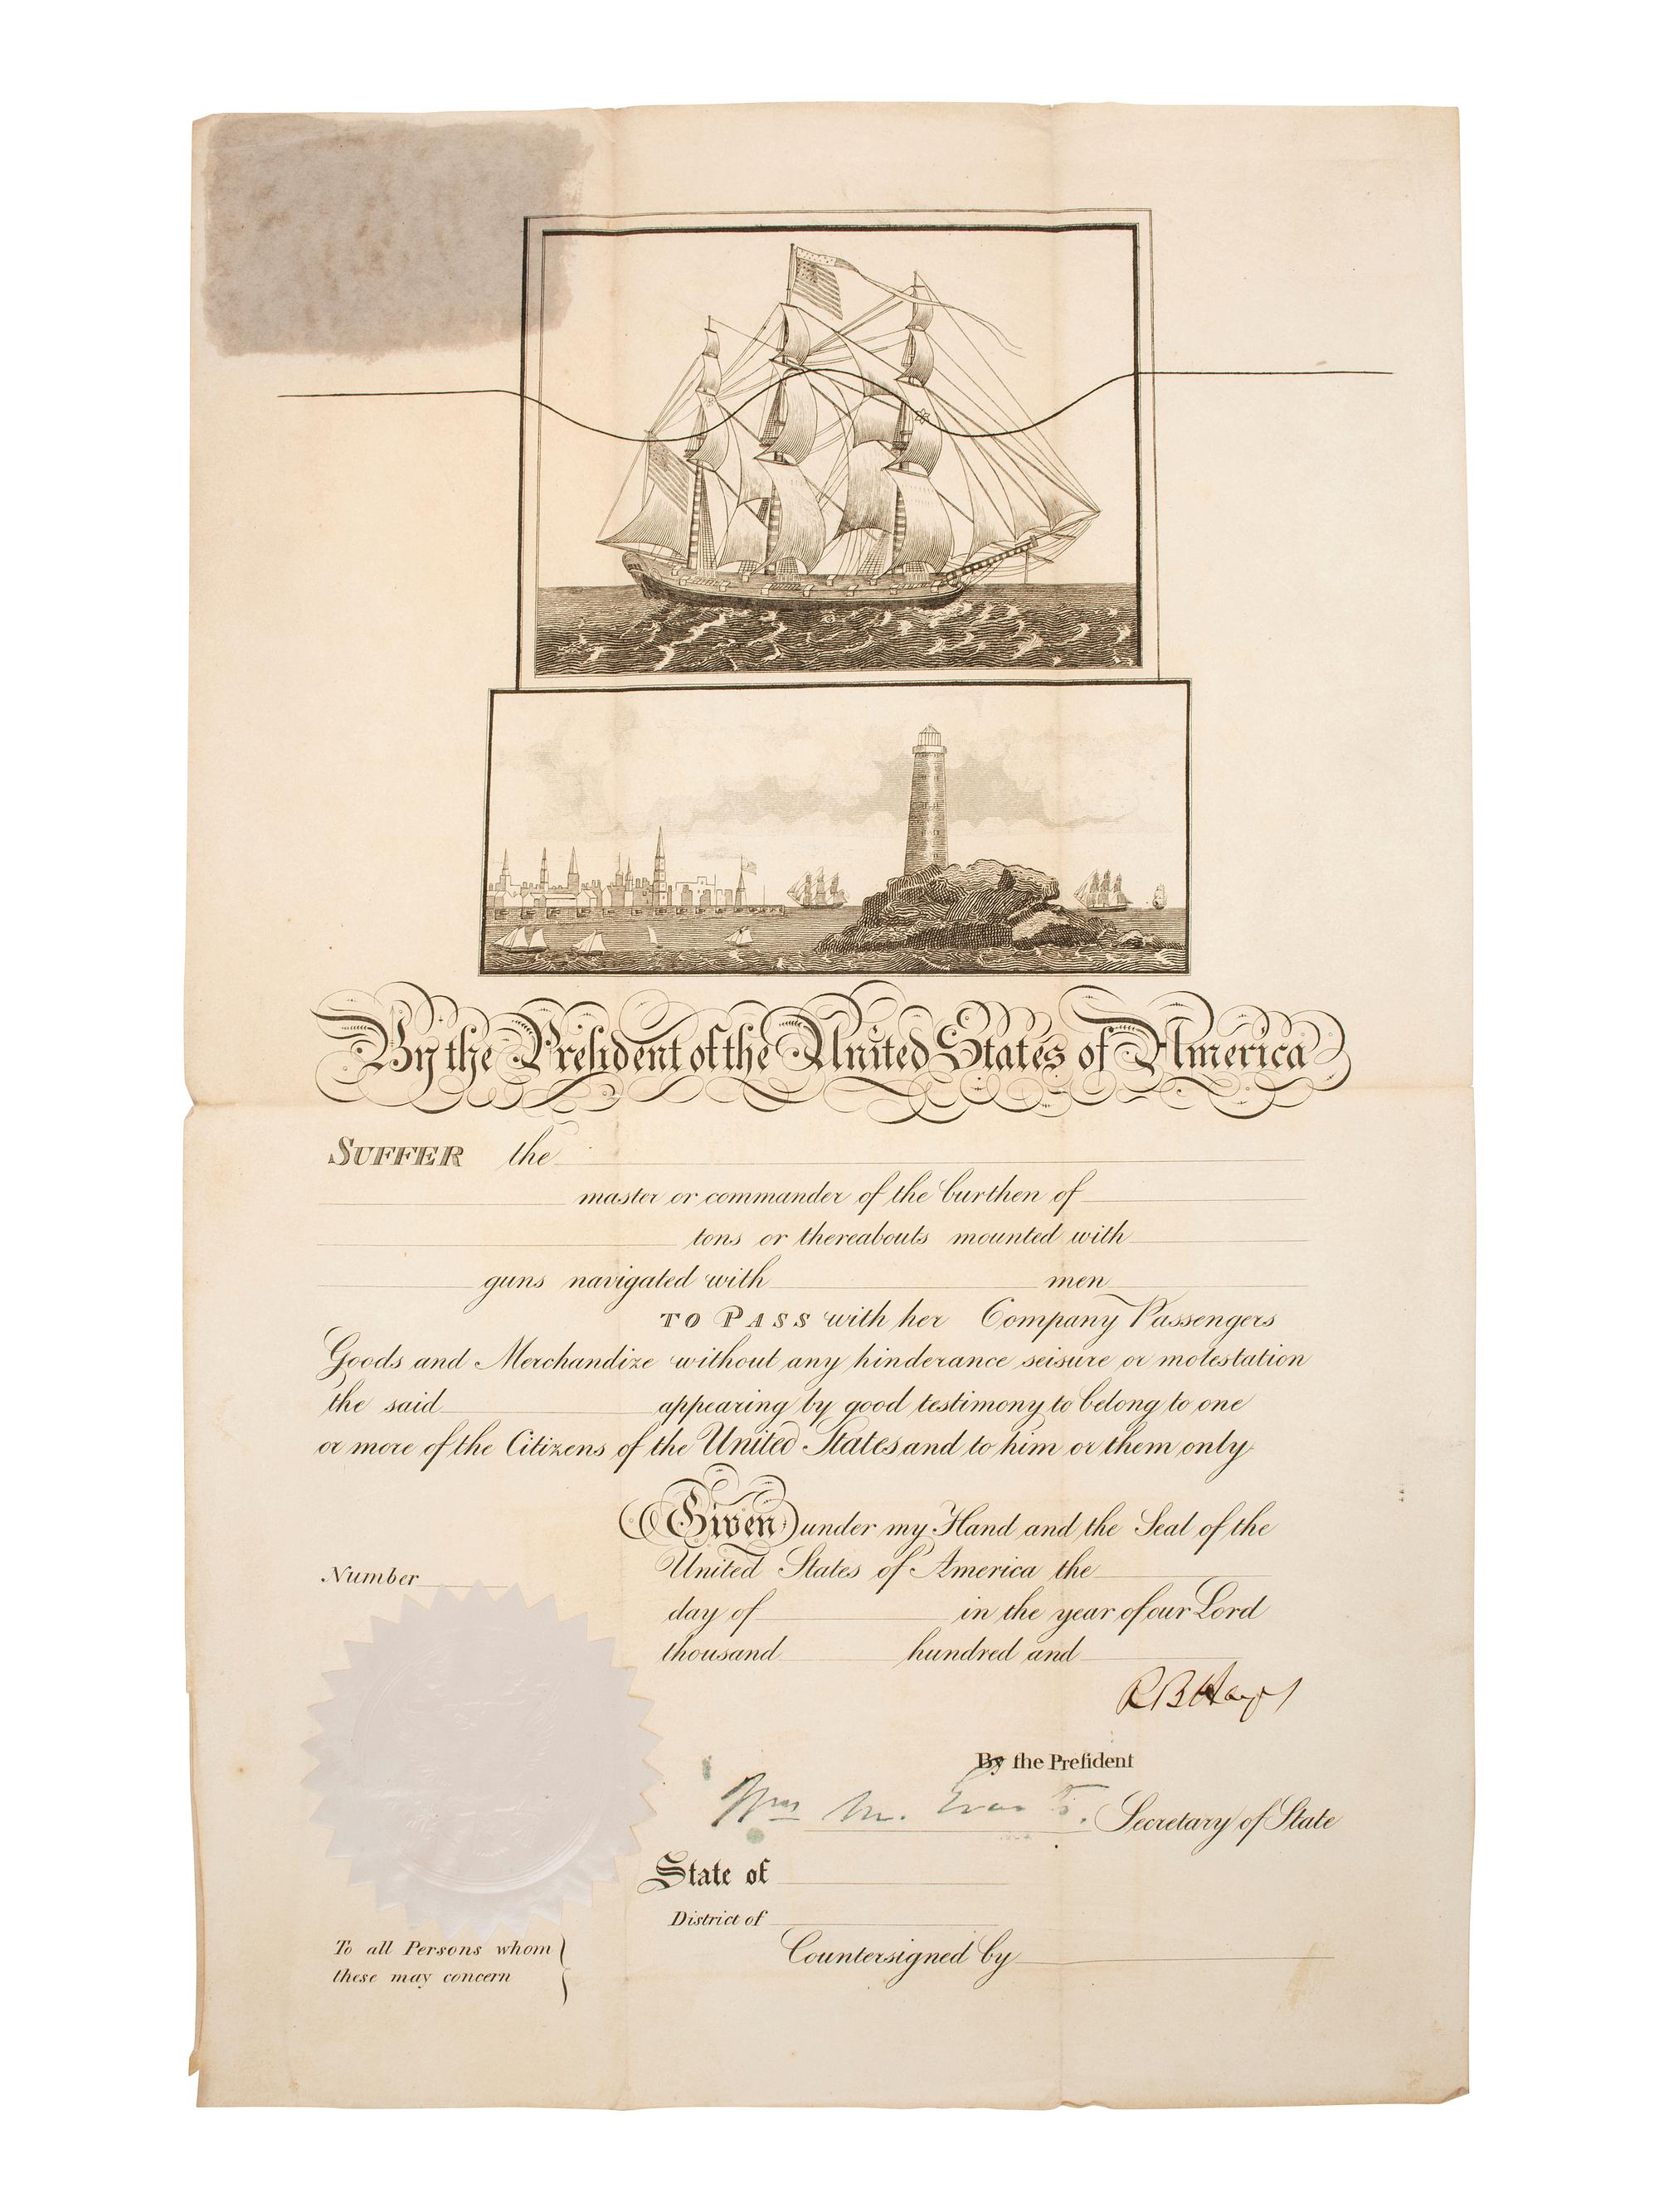 By the President of the United States of America
SUFFER the
master or commander of the burthen of
tons or thereabouts mounted with
guns navigated with men
TO PASS with her Company Passengers
Goods and Merchandize without any hinderance seisure or molestation
the said appearing by good testimony to belong to one
or more of the Citizens of the United States and to him or them only
Given under my Hand and the Seal of the
United States of America the
Number
day of in the year of our Lord
thousand hundred and
R B Hayes
By the President
Wm M. Evarts. Secretary of State
State of
District of
Countersigned by
To all Persons whom
these may concern